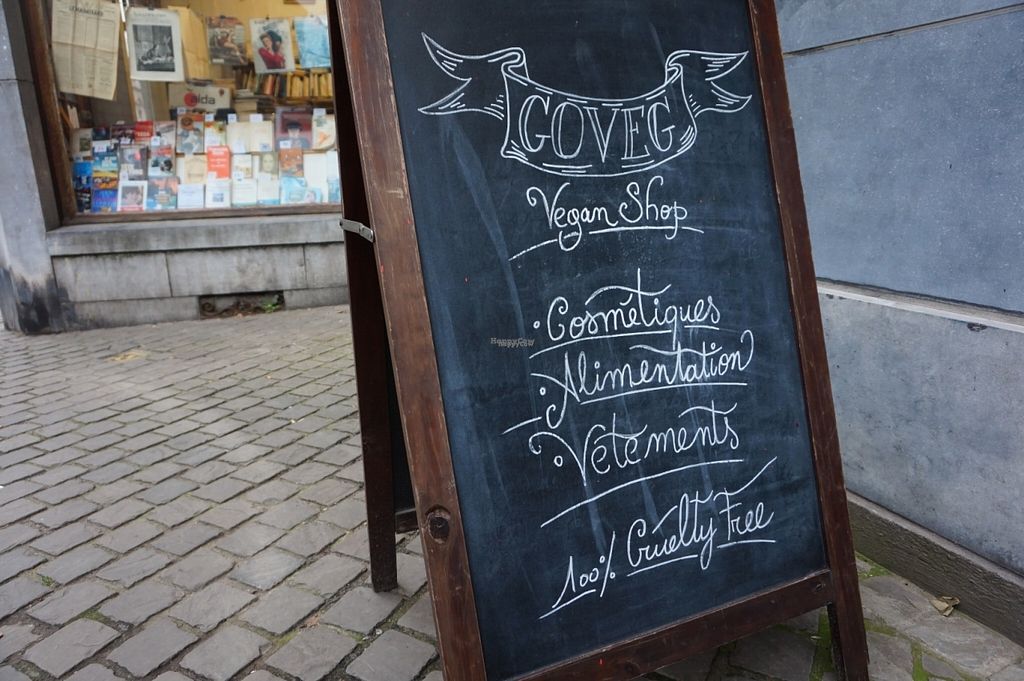 GOVEG
Vegan Shop
• Cosmétiques
• Alimentation
• Vêtements
100% Cruelty Free
HappyCow